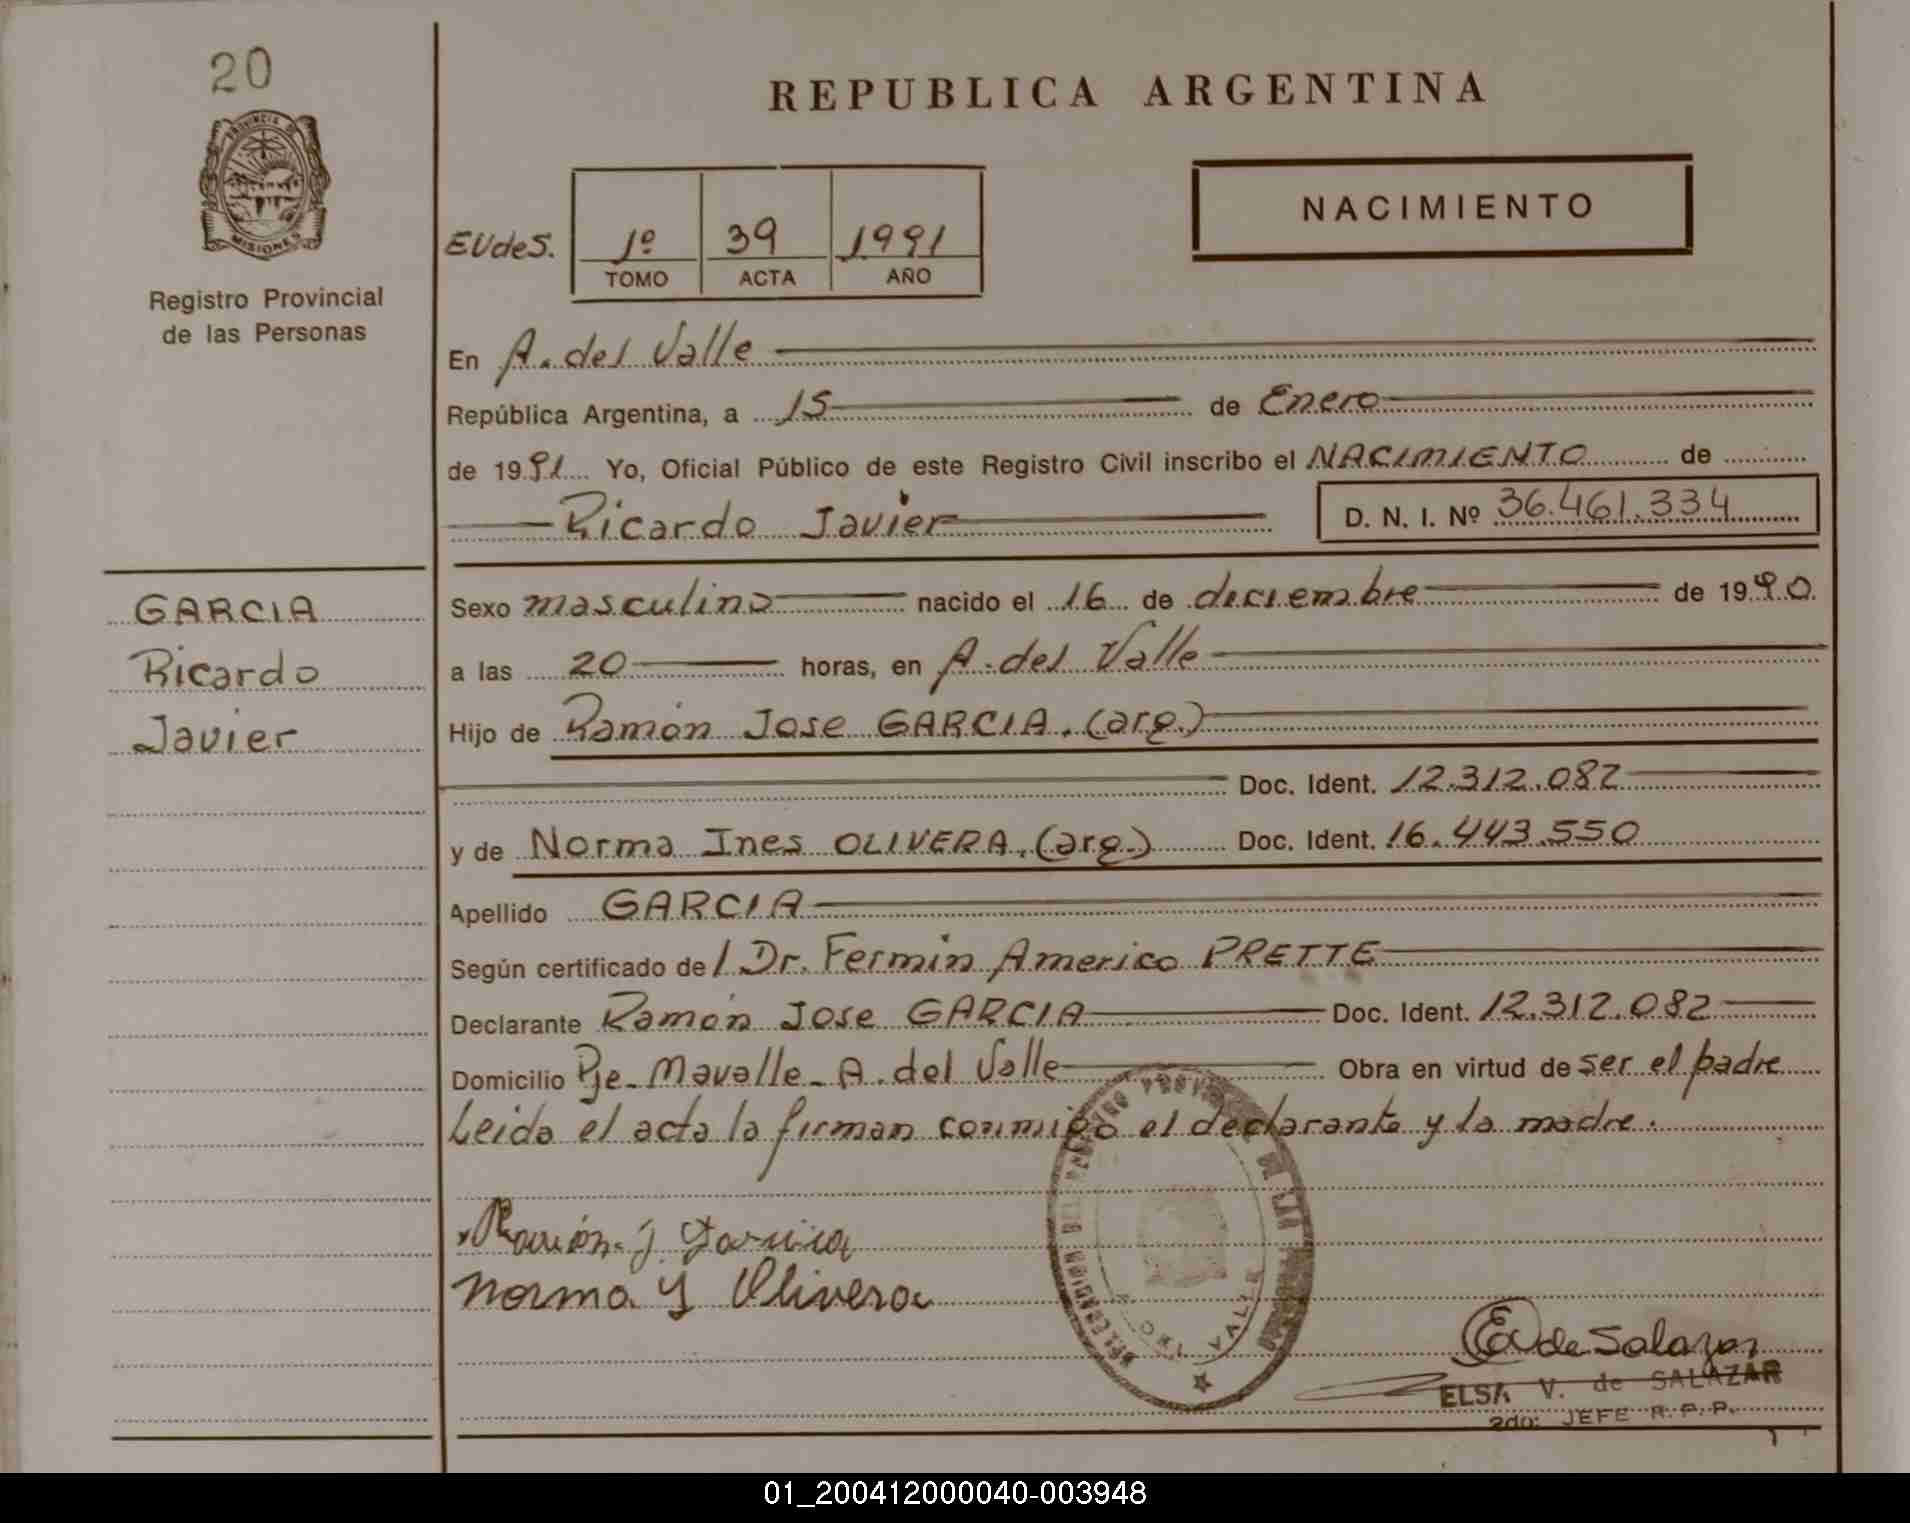 20
PROVINCIA DE
MISIONES
Registro Provincial
de las Personas
GARCIA
Ricardo
Javier
REPUBLICA ARGENTINA
NACIMIENTO
EVdeS.
1º 39 1991
TOMO ACTA AÑO
En A. del Valle
República Argentina, a 15 de Enero
de 1991 Yo, Oficial Público de este Registro Civil inscribo el NACIMIENTO de
Ricardo Javier D. N. I. Nº 36.461.334
Sexo masculino nacido el 16 de diciembre de 1990
a las 20 horas, en A. del Valle
Hijo de Ramón Jose GARCIA. (arg.)
Doc. Ident. 12.312.082
y de Norma Ines OLIVERA. (arg.) Doc. Ident. 16.443.550
Apellido GARCIA
Según certificado de / Dr. Fermin Americo PRETTE
Declarante Ramón Jose GARCIA Doc. Ident. 12.312.082
Domicilio Pje. Mavalle - A. del Valle Obra en virtud de ser el padre
Leida el acta la firman conmigo el declarante y la madre.
Ramón. J. Garcia
Norma Y Olivera
DELEGACION DEL REGISTRO PROVINCIAL DE LAS PERSONAS
VALLE
EVde Salazar
ELSA V. de SALAZAR
2do: JEFE R. P. P.
01_200412000040-003948